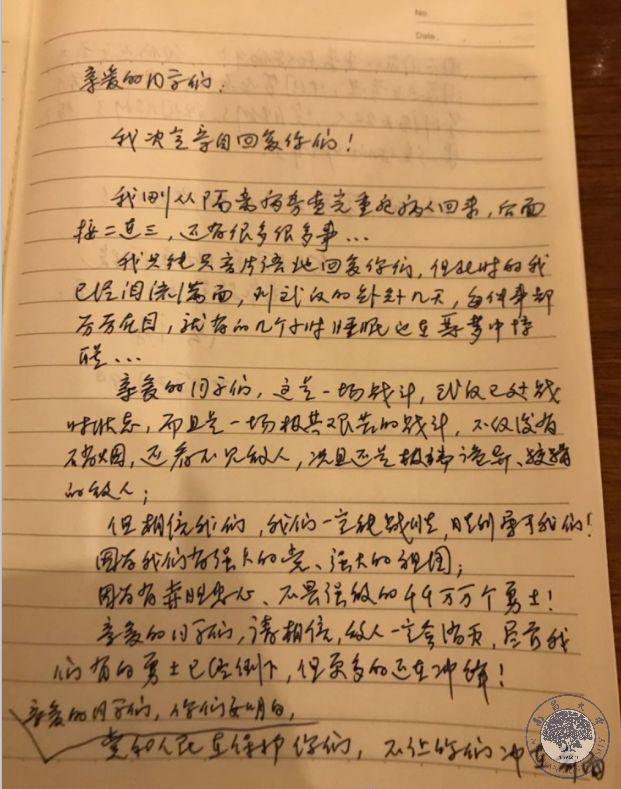 No.
Date.
亲爱的同学们：
我决定亲自回复你们！
我刚从隔离病房查完重症病人回来，后面
接二连三，还有很多很多事…
我只能只言片语地回复你们，但此时的我
已经泪流满面，到武汉的几天，每件事都
历历在目，就有的几个小时睡眠也在噩梦中惊
醒…
亲爱的同学们，这是一场战斗，武汉已处战
时状态，而且是一场极其艰苦的战斗，不仅没有
硝烟，还看不见敌人，况且还是极端诡异、狡猾
的敌人；
但相信我们，我们一定能战胜，胜利属于我们！
因为我们有强大的党、强大的祖国；
因为有赤胆忠心、不畏强敌的千千万万个勇士！
亲爱的同学们，请相信，敌人一定会消灭，尽管我
们有的勇士已经倒下，但更多的还在冲锋！
亲爱的同学们，你们要明白，
党和人民在保护你们，不让你们冲在前面
南昌大学